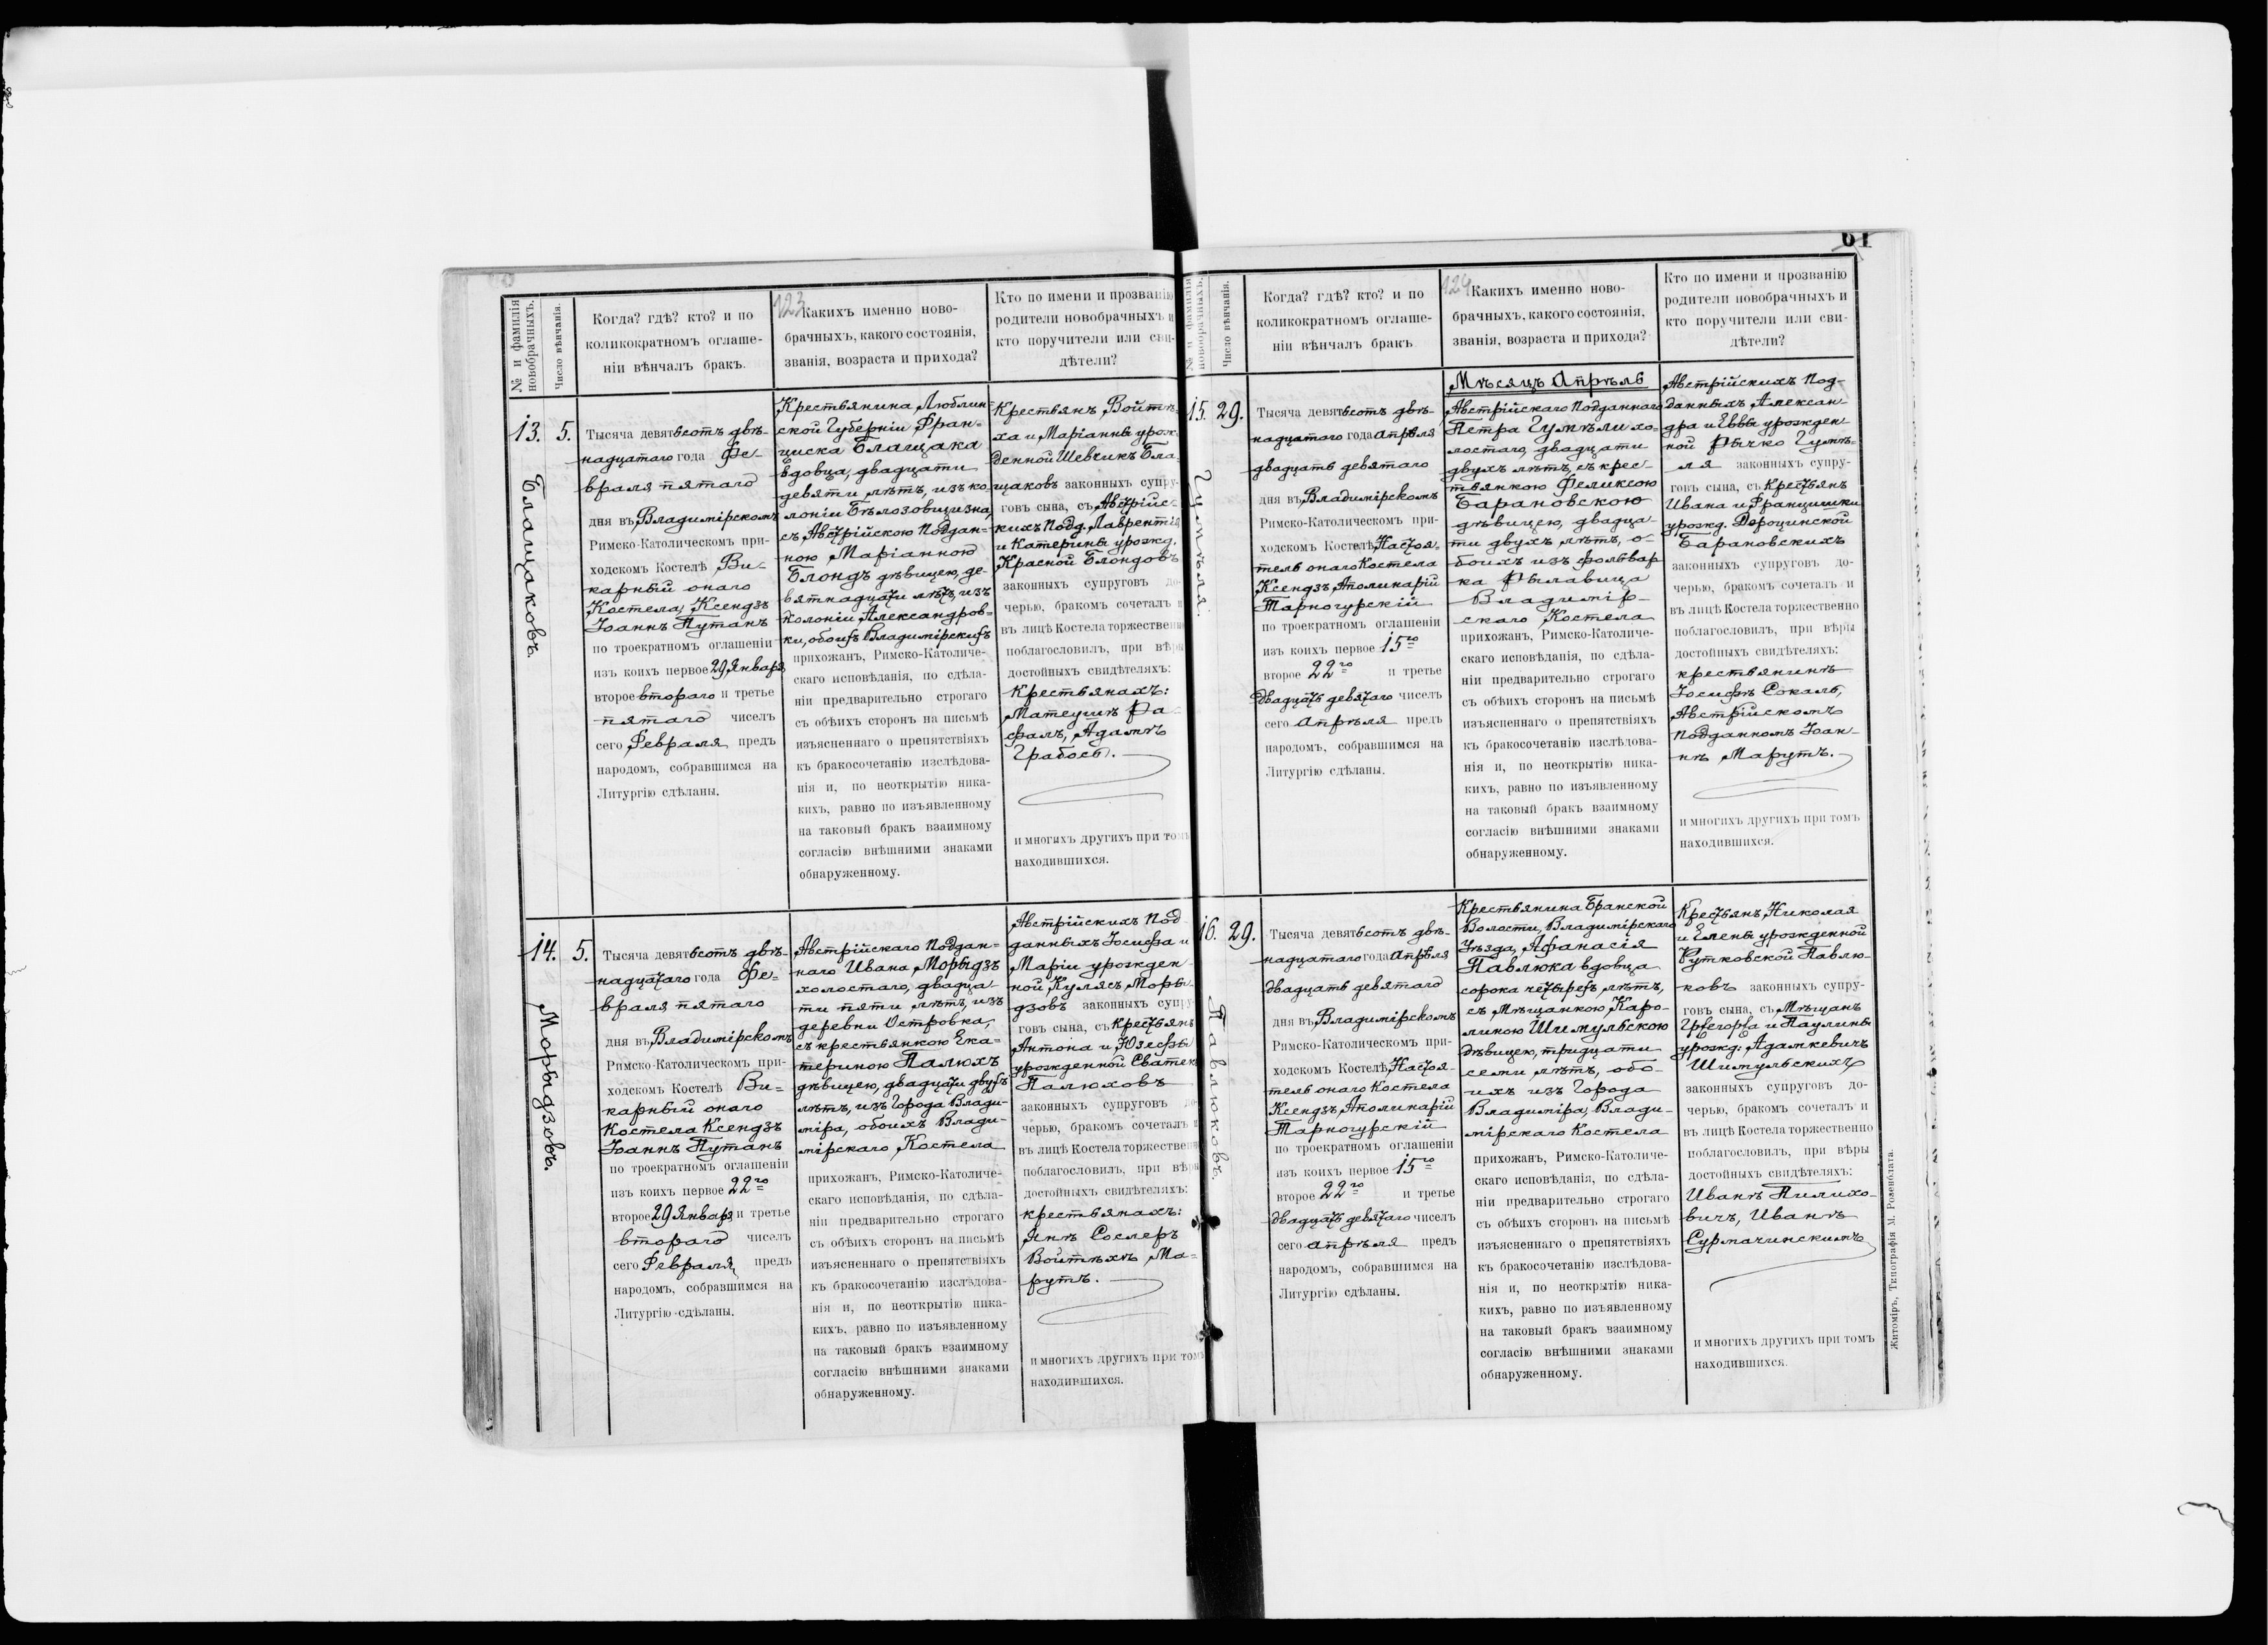 № и фамилія
новобрачныхъ.
Число вѣнчанія.
Когда? гдѣ? кто? и по
коликократномъ оглаше-
ніи вѣнчалъ бракъ.
123
Какихъ именно ново-
брачныхъ, какого состоянія,
званія, возраста и прихода?
Кто по имени и прозванію
родители новобрачныхъ и
кто поручители или сви-
дѣтели?
13.
5.
Блащаковъ.
Тысяча девятьсотъ двѣ-
надцатаго года Фе-
враля пятаго
дня въ Владимірскомъ
Римско-Католическомъ при-
ходскомъ Костелѣ Ви-
карный онаго
Костела, Ксендзъ
Іоаннъ Путанъ
по троекратномъ оглашеніи
изъ коихъ первое 29 Января
второе втораго и третье
пятаго чиселъ
сего Февраля предъ
народомъ, собравшимся на
Литургію сдѣланы.
Крестьянина Люблин-
ской Губерніи Фран-
циска Блащака
вдовца, двадцати
девяти лѣтъ, изъ ко
лоніи Бѣлозовщизна,
съ Австрійскою Поддан-
ною Маріанною
Блондъ дѣвицею, де-
вятнадцати лѣтъ, изъ
Колоніи Александров-
ки, обоихъ Владимірскихъ
прихожанъ, Римско-Католиче-
скаго исповѣданія, по сдѣла-
ніи предварительно строгаго
съ обѣихъ сторонъ на письмѣ
изъясненнаго о препятствіяхъ
къ бракосочетанію изслѣдова-
нія и, по неоткрытію ника-
кихъ, равно по изъявленному
на таковый бракъ взаимному
согласію внѣшними знаками
обнаруженному.
Крестьянъ Войтѣ-
ха и Маріанны урож-
денной Шевчикъ Бла-
щаковъ законныхъ супру-
говъ сына, съ Австрійс-
кихъ Подд. Лаврентія
и Катерины урожд.
Красной Блондовъ
законныхъ супруговъ до-
черью, бракомъ сочеталъ и
въ лицѣ Костела торжественно
поблагословилъ, при вѣры
достойныхъ свидѣтеляхъ:
Крестьянахъ:
Матеушъ Ра-
фалъ, Адамъ
Грабось.
и многихъ другихъ при томъ
находившихся.
14.
5.
Морыдзовъ.
Тысяча девятьсотъ двѣ-
надцатаго года Фе-
враля пятаго
дня въ Владимірскомъ
Римско-Католическомъ при-
ходскомъ Костелѣ Ви-
карный онаго
Костела Ксендзъ
Іоаннъ Путанъ
по троекратномъ оглашеніи
изъ коихъ первое 22го
второе 29 Января и третье
втораго чиселъ
сего Февраля предъ
народомъ, собравшимся на
Литургію сдѣланы.
Австрійскаго Поддан-
наго Ивана Морыдзъ
холостаго, двадца-
ти пяти лѣтъ, изъ
деревни Островка,
съ крестьянкою Ека-
териною Палюхъ
дѣвицею, двадцати двухъ
лѣтъ, изъ Города Влади-
міра, обоихъ Влади-
мірскаго Костела
прихожанъ, Римско-Католиче-
скаго исповѣданія, по сдѣла-
ніи предварительно строгаго
съ обѣихъ сторонъ на письмѣ
изъясненнаго о препятствіяхъ
къ бракосочетанію изслѣдова-
нія и, по неоткрытію ника-
кихъ, равно по изъявленному
на таковый бракъ взаимному
согласію внѣшними знаками
обнаруженному.
Австрійскихъ Под
данныхъ Іосифа и
Маріи урожден-
ной Кулясъ Моры-
дзовъ законныхъ супру-
говъ сына, съ Крестьянъ
Антона и Юзефы
урожденной Сватекъ
Палюховъ
законныхъ супруговъ до-
черью, бракомъ сочеталъ и
въ лицѣ Костела торжественно
поблагословилъ, при вѣры
достойныхъ свидѣтеляхъ:
крестьянахъ:
Янъ Сослеръ
Войтѣхъ Ма-
рутъ.
и многихъ другихъ при томъ
находившихся.
61
№ и фамилія
новобрачныхъ.
Число вѣнчанія.
Когда? гдѣ? кто? и по
коликократномъ оглаше-
ніи вѣнчалъ бракъ
124
Какихъ именно ново-
брачныхъ, какого состоянія,
званія, возраста и прихода?
Кто по имени и прозванію
родители новобрачныхъ и
кто поручители или сви-
дѣтели?
15.
29.
Гумѣля.
Тысяча девятьсотъ двѣ-
надцатаго года Апрѣля
двадцать девятаго
дня въ Владимірскомъ
Римско-Католическомъ при-
ходскомъ Костелѣ Настоя-
тель онаго Костела
Ксендзъ Аполинарій
Тарногурскій
по троекратномъ оглашеніи
изъ коихъ первое 15го
второе 22го и третье
двадцать девятаго чиселъ
сего Апрѣля предъ
народомъ, собравшимся на
Литургію сдѣланы.
Мѣсяцъ Апрѣль
Австрійскаго Подданнаго
Петра Гумѣли хо-
лостаго, двадцати
двухъ лѣтъ, съ крес-
тьянкою Феликсою
Барановскою
дѣвицею, двадца-
ти двухъ лѣтъ, о-
боихъ изъ фольвар
ка Рылавица
Владимір-
скаго Костела
прихожанъ, Римско-Католиче-
скаго исповѣданія, по сдѣла-
ніи предварительно строгаго
съ обѣихъ сторонъ на письмѣ
изъясненнаго о препятствіяхъ
къ бракосочетанію изслѣдова-
нія и, по неоткрытію ника-
кихъ, равно по изъявленному
на таковый бракъ взаимному
согласію внѣшними знаками
обнаруженному.
Австрійскихъ Под-
данныхъ Алексан-
дра и Еввы урожден-
ной Рычко Гумѣ-
ля законныхъ супру-
говъ сына, съ Крестьянъ
Ивана и Францишки
урожд. Дороцинской
Барановскихъ
законныхъ супруговъ до-
черью, бракомъ сочеталъ и
въ лицѣ Костела торжественно
поблагословилъ, при вѣры
достойныхъ свидѣтеляхъ:
крестьянинѣ
Іосифѣ Сокалѣ,
Австрійскомъ
Подданномъ Іоан-
нѣ Марутѣ.
и многихъ другихъ при томъ
находившихся.
16.
29.
Павлюковъ.
Тысяча девятьсотъ двѣ-
надцатаго года Апрѣля
двадцать девятаго
дня въ Владимірскомъ
Римско-Католическомъ при-
ходскомъ Костелѣ, Настоя-
тель онаго Костела
Ксендзъ, Аполинарій
Тарногурскій
по троекратномъ оглашеніи
изъ коихъ первое 15го
второе 22го и третье
двадцать девятаго чиселъ
сего Апрѣля предъ
народомъ, собравшимся на
Литургію сдѣланы.
Крестьянина Бранской
Волости, Владимірскаго
Уѣзда, Афанасія
Павлюка вдовца
сорока четырехъ лѣтъ,
съ Мѣщанкою, Каро-
линою Шимульскою
дѣвицею, тридцати
семи лѣтъ, обо-
ихъ изъ Города
Владиміра, Влади-
мірскаго Костела
прихожанъ, Римско-Католиче-
скаго исповѣданія, по сдѣла-
ніи предварительно строгаго
съ обѣихъ сторонъ на письмѣ
изъясненнаго о препятствіяхъ
къ бракосочетанію изслѣдова-
нія и, по неоткрытію ника-
кихъ, равно по изъявленному
на таковый бракъ взаимному
согласію внѣшними знаками
обнаруженному.
Крестьянъ Николая
и Елены урожденной
Рутковской Павлю-
ковъ законныхъ супру-
говъ сына, съ Мѣщанъ
Григорія и Паулины
урожд: Адамкевичъ
Шимульскихъ
законныхъ супруговъ до-
черью, бракомъ сочеталъ и
въ лицѣ Костела торжественно
поблагословилъ, при вѣры
достойныхъ свидѣтеляхъ:
Иванѣ Пилихо-
вичъ, Иванѣ
Сурмачинскимъ
и многихъ другихъ при томъ
находившихся.
Житоміръ, Типографія М. Розенблата.